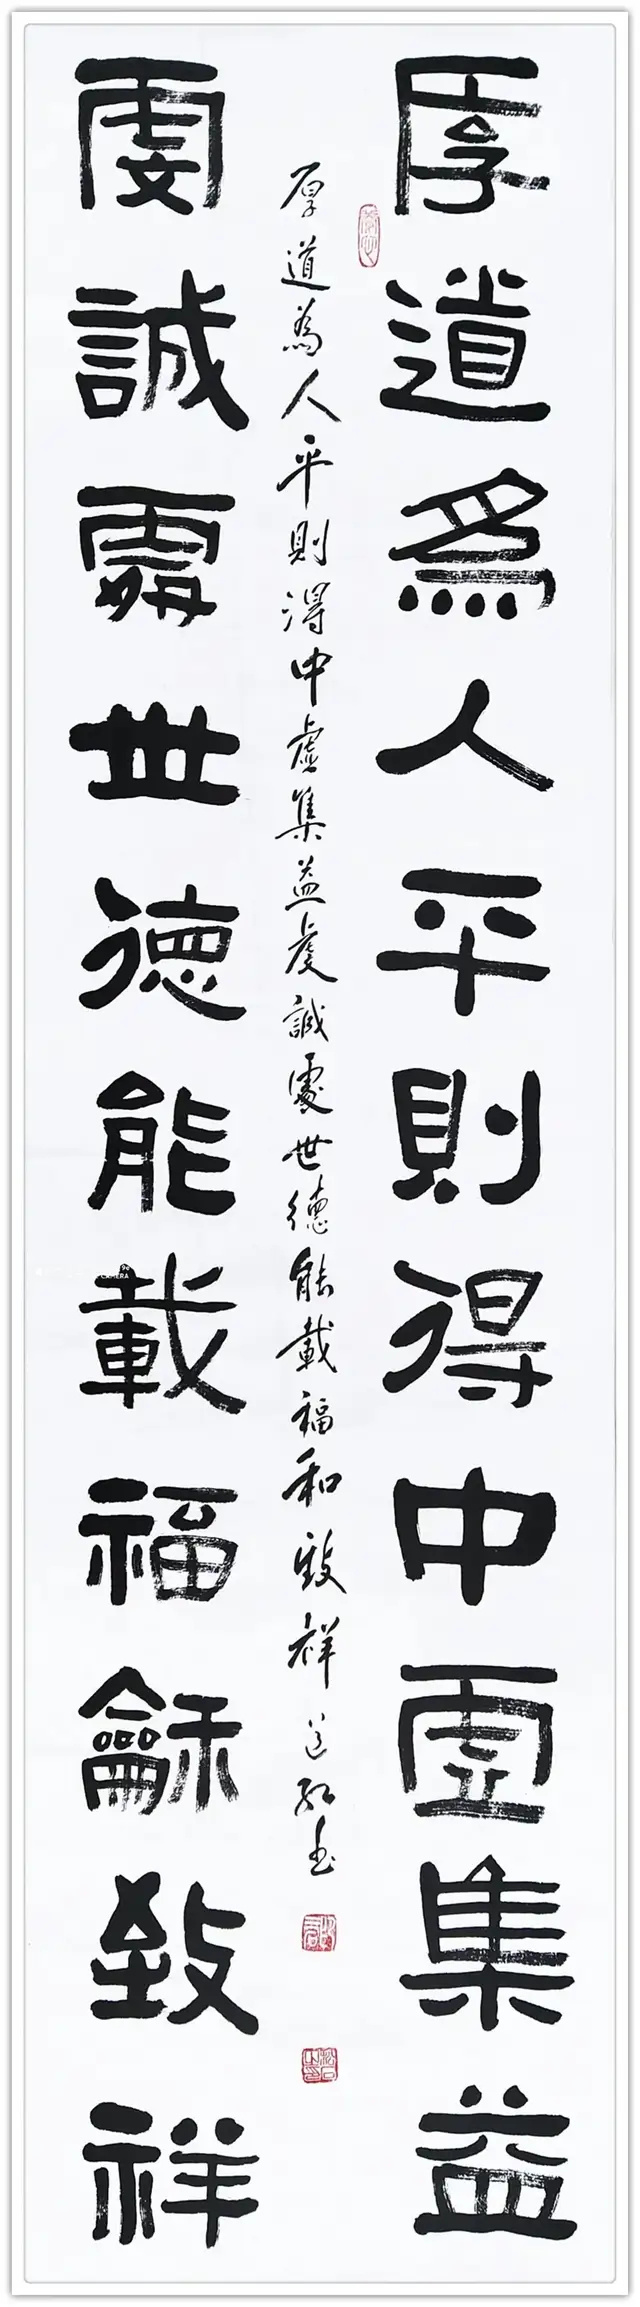 厚道爲人平則得中虛集益
虔誠處世德能載福龢致祥
厚道為人平則得中虛集益虔誠處世德能載福和致祥
CAMERA